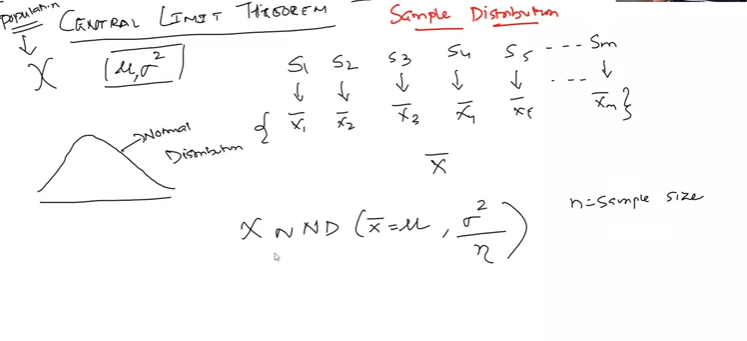 population CENTRAL LIMIT THEOREM Sample Distribution
X (μ, σ²)
S1 S2 S3 S4 S5 --- Sm
x̄1 x̄2 x̄3 x̄4 x̄5 --- x̄m
{ }
Normal
Distribution
x̄
n = Sample size
X ~ ND (x̄ = μ, σ²/n)